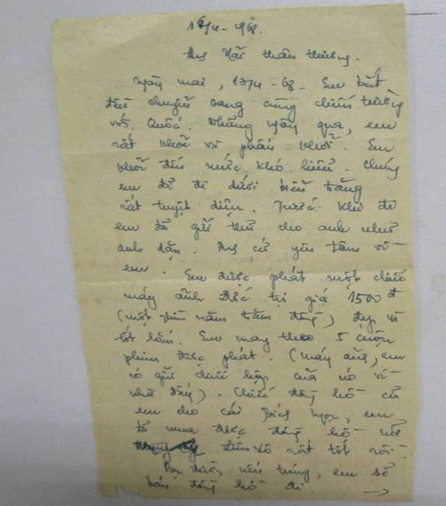 16/4-968.
Anh Hải thân thương.
Ngày mai, 17/4-68. Em bắt
đầu chuyển sang cùng chiến trường
với Quốc. Những ngày qua, em
rất khỏe và phấn khởi. Em
khỏe đến mức khó hiểu. Chúng
em đã đi dưới biển trăng
rất tuyệt diệu. Trước khi đi
em đã gửi thư cho anh như
anh dặn. Anh cứ yên tâm về
em. Em được phát một chiếc
máy ảnh Đức trị giá 1500đ
(một nghìn năm trăm đồng) đẹp và
tốt lắm. Em mang theo 5 cuộn
phim được phát. (máy ảnh, em
có gửi chiếc hộp của nó về
nhà đấy). Chiếc đồng hồ cũ
em cho cái Bích Ngọc, em
đã mua được đồng hồ mới
Liên Xô rất tốt rồi.
Dọc đường, nếu túng, em sẽ
bán đồng hồ đi. →